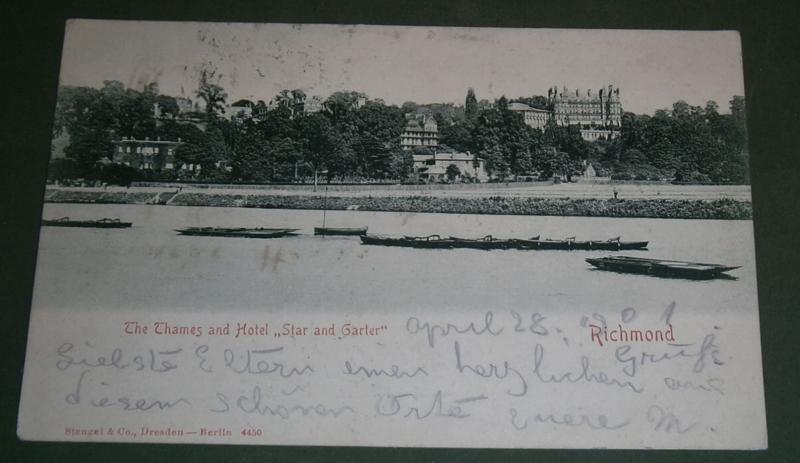 The Thames and Hotel „Star and Garter"
Richmond
april 28. 1901.
Liebste Eltern einen herzlichen Gruß aus
diesem schönen Orte Euere M.
Stengel & Co., Dresden — Berlin 4450